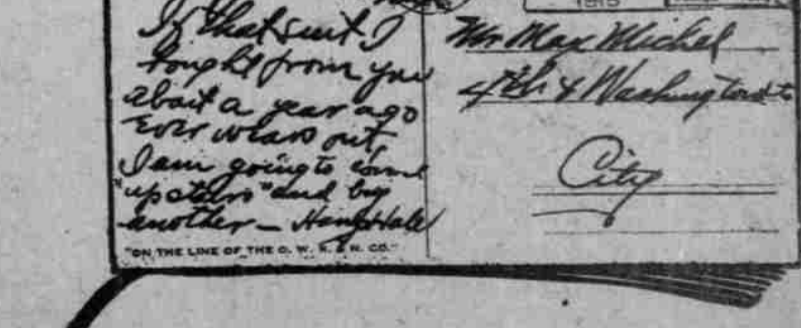 If that suit I
bought from you
about a year ago
Ever wears out,
I am going to come
"upstairs" and buy
another — Hale
"ON THE LINE OF THE O. W. R. & N. CO."
1915
Mr Max Michel
4th & Washington sts
City